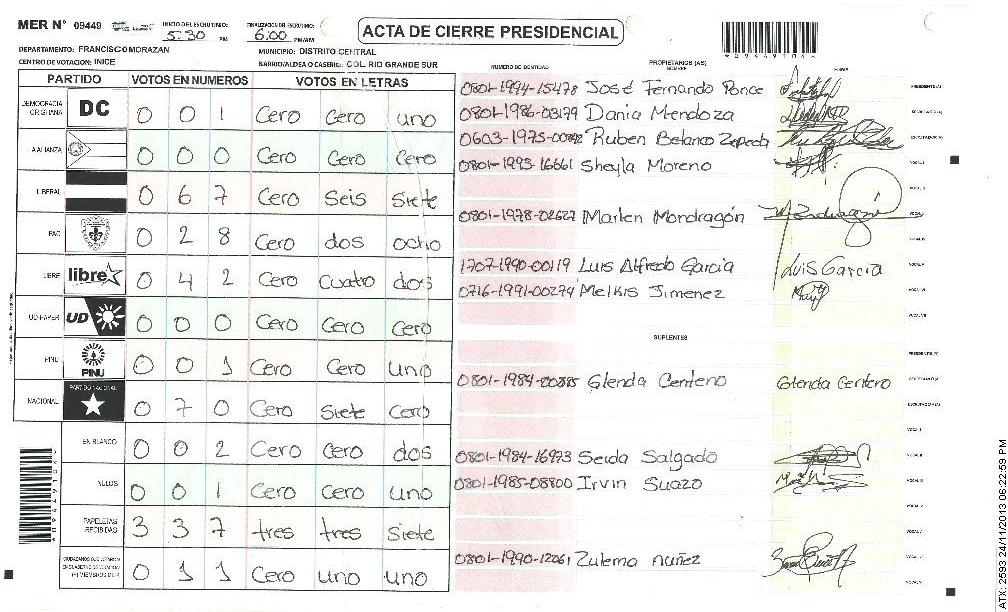 MER N° 09449 INICIO DEL ESCRUTINIO: 5:30 PM FINALIZACION DE ESCRUTINIO: 6:00 PM/AM ACTA DE CIERRE PRESIDENCIAL
DEPARTAMENTO: FRANCISCO MORAZAN MUNICIPIO: DISTRITO CENTRAL
CENTRO DE VOTACION: INICE BARRIO/ALDEA O CASERIO: COL RIO GRANDE SUR
PARTIDO VOTOS EN NUMEROS VOTOS EN LETRAS
DEMOCRACIA CRISTIANA DC 0 0 1 Cero Cero uno
A ALIANZA 0 0 0 Cero Cero Cero
LIBERAL 0 6 7 Cero Seis Siete
PAC 0 2 8 Cero dos ocho
LIBRE libre 0 4 2 Cero Cuatro dos
UD-FAPER UD 0 0 0 Cero Cero Cero
PINU PINU 0 0 1 Cero Cero uno
NACIONAL PARTIDO NACIONAL 0 7 0 Cero Siete Cero
EN BLANCO 0 0 2 Cero Cero dos
NULOS 0 0 1 Cero Cero uno
PAPELETAS RECIBIDAS 3 3 7 tres tres Siete
0 1 1 Cero uno uno
NUMERO DE IDENTIDAD PROPIETARIOS (AS) NOMBRE FIRMA
0801-1994-15478 José Fernando Ponce PRESIDENTE (A)
0801-1986-03179 Dania Mendoza SECRETARIO (A)
0603-1975-00842 Ruben Belarco Zepeda ESCRUTADOR (A)
0801-1993-16661 Sheyla Moreno VOCAL I
VOCAL II
0801-1978-02627 Marlen Mondragón Mondragón VOCAL III
VOCAL IV
1707-1990-00119 Luis Alfredo Garcia Luis Garcia VOCAL V
0716-1991-00274 Melkis Jimenez VOCAL VI
VOCAL VII
SUPLENTES
PRESIDENTE (A)
0801-1984-00885 Glenda Centeno Glenda Centeno SECRETARIO (A)
ESCRUTADOR (A)
VOCAL I
0801-1984-16973 Seida Salgado VOCAL II
0801-1985-08800 Irvin Suazo VOCAL III
VOCAL IV
VOCAL V
0801-1990-12061 Zulema Nuñez VOCAL VI
VOCAL VII
A09449105
ATX: 2593 24/11/2013 06:22:59 PM